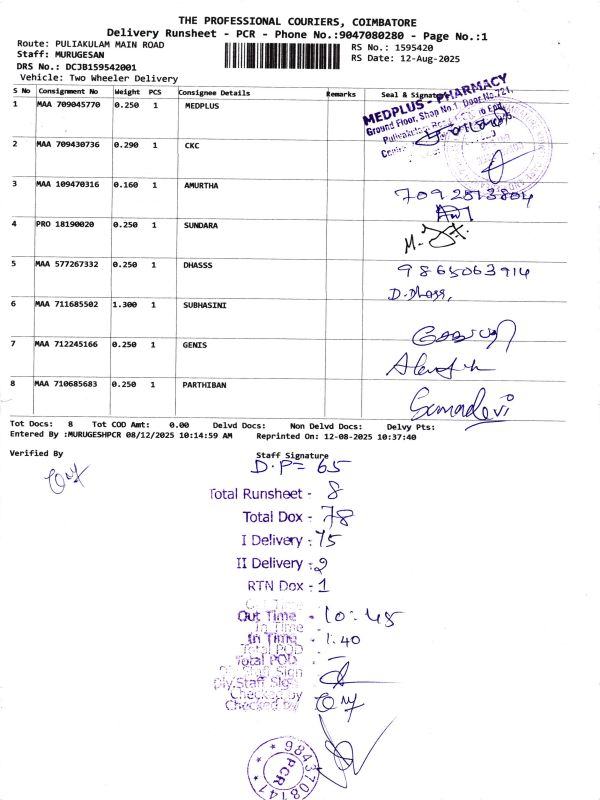 THE PROFESSIONAL COURIERS, COIMBATORE
Delivery Runsheet - PCR - Phone No.:9047080280 - Page No.:1
Route: PULIAKULAM MAIN ROAD
RS No.: 1595420
Staff: MURUGESAN
RS Date: 12-Aug-2025
DRS No.: DCJB159542001
Vehicle: Two Wheeler Delivery
S No Consignment No Weight PCS Consignee Details Remarks Seal & Signature
1 MAA 709045770 0.250 1 MEDPLUS
MEDPLUS - PHARMACY
Ground Floor, Shop No.1, Door No.721,
2 MAA 709430736 0.290 1 CKC
3 MAA 109470316 0.160 1 AMURTHA 7092513804
4 PRO 18190020 0.250 1 SUNDARA
5 MAA 577267332 0.250 1 DHASSS 9865063914
D.Dhass,
6 MAA 711685502 1.300 1 SUBHASINI
7 MAA 712245166 0.250 1 GENIS
8 MAA 710685683 0.250 1 PARTHIBAN Esmadevi
Tot Docs: 8 Tot COD Amt: 0.00 Delvd Docs: Non Delvd Docs: Delvy Pts:
Entered By :MURUGESHPCR 08/12/2025 10:14:59 AM Reprinted On: 12-08-2025 10:37:40
Verified By Staff Signature
D.P= 65
Total Runsheet - 8
Total Dox - 78
I Delivery : 75
II Delivery : 2
RTN Dox - 1
Out Time - 10:45
In Time - 1.40
Total POD
Dly.Staff Sign
Checked by
9843708141
PCR